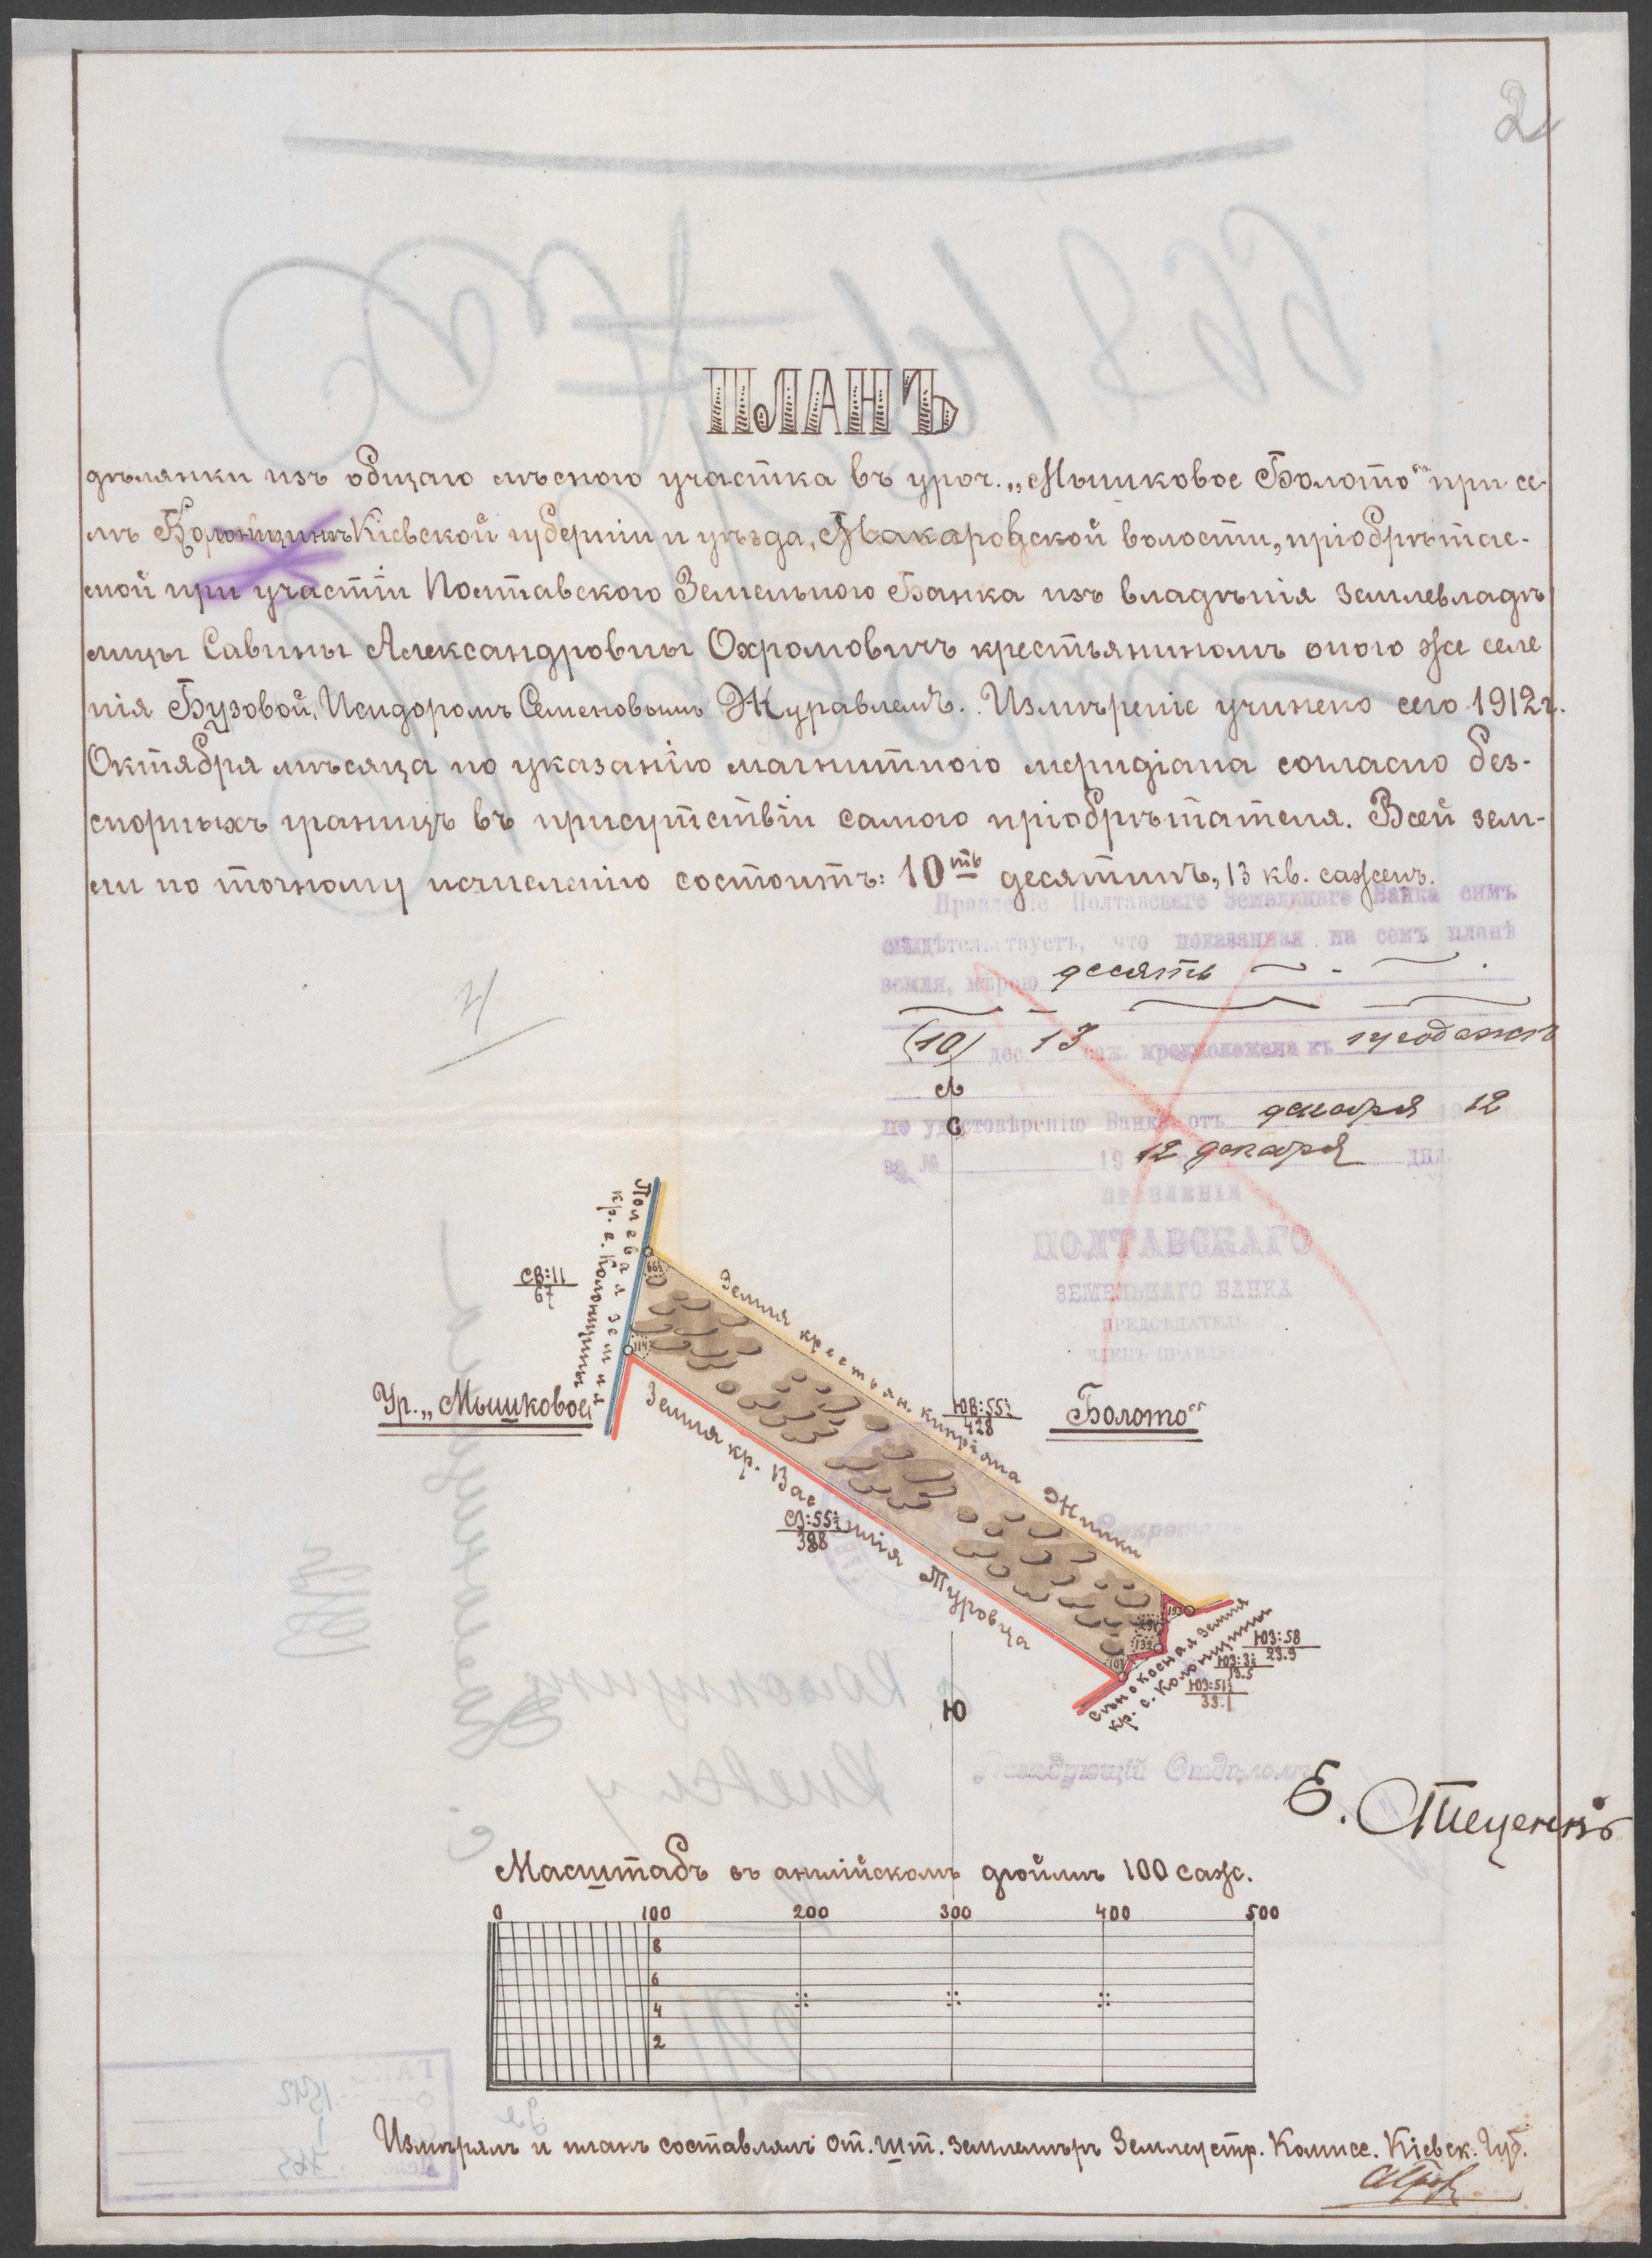 2
ПЛАНЪ
дѣлянки изъ общаго лѣсного участка въ уроч. „Мышковое Болото“ при се-
лѣ Колонщинѣ Кіевской губерніи и уѣзда, Макаровской волости, пріобрѣтае-
мой при участіи Полтавского Земельного Банка изъ владѣнія землевладѣ
лицы Савины Александровны Охромовичъ крестьяниномъ оного же селе
нія Бузовой, Исидоромъ Семеновымъ Журавлемъ. Измѣреніе учинено сего 1912 г.
Октября мѣсяца по указанію магнитного меридіана согласно без-
спорныхъ границъ въ присутствіи самого пріобрѣтателя. Всей зем-
ли по точному исчисленію состоитъ: 10ть десятинъ, 13 кв. сажень.
Правленіе Полтавскаго Земельнаго Банка симъ
свидѣтельствуетъ, что показанная на семъ планѣ
земля, мѣрою десять
(10) дес. 13 саж. предположена къ
по удостовѣренію Банка отъ декабря 1912
за № 19 12 декабря дня
ПРАВЛЕНІЯ
ПОЛТАВСКАГО
ЗЕМЕЛЬНАГО БАНКА
ПРЕДСѢДАТЕЛЬ
ЧЛЕНЪ ПРАВЛЕНІЯ
4
С
Полевая земля
кр. с. Колонщины
СВ:11
67
66½
114
Земля крестьян. Кипріяна Жилки
Ур. „Мышковое
ЮВ:55½
428
Болото“
Земля кр. Василія Туровца
СЗ:55½
398
Секретарь
193
132
107
Сѣнокосная земля
кр. с. Колонщины
ЮЗ:58
23.9
ЮЗ:3½
13.5
ЮЗ:51½
33.1
Ю
Завѣдующій Отдѣломъ
Масштабъ въ англійскомъ дюймѣ 100 саж.
0 100 200 300 400 500
8
6
4
2
Измѣрялъ и планъ составлялъ от. шт. землемѣръ Землеустр. Комисс. Кіевск. Губ.